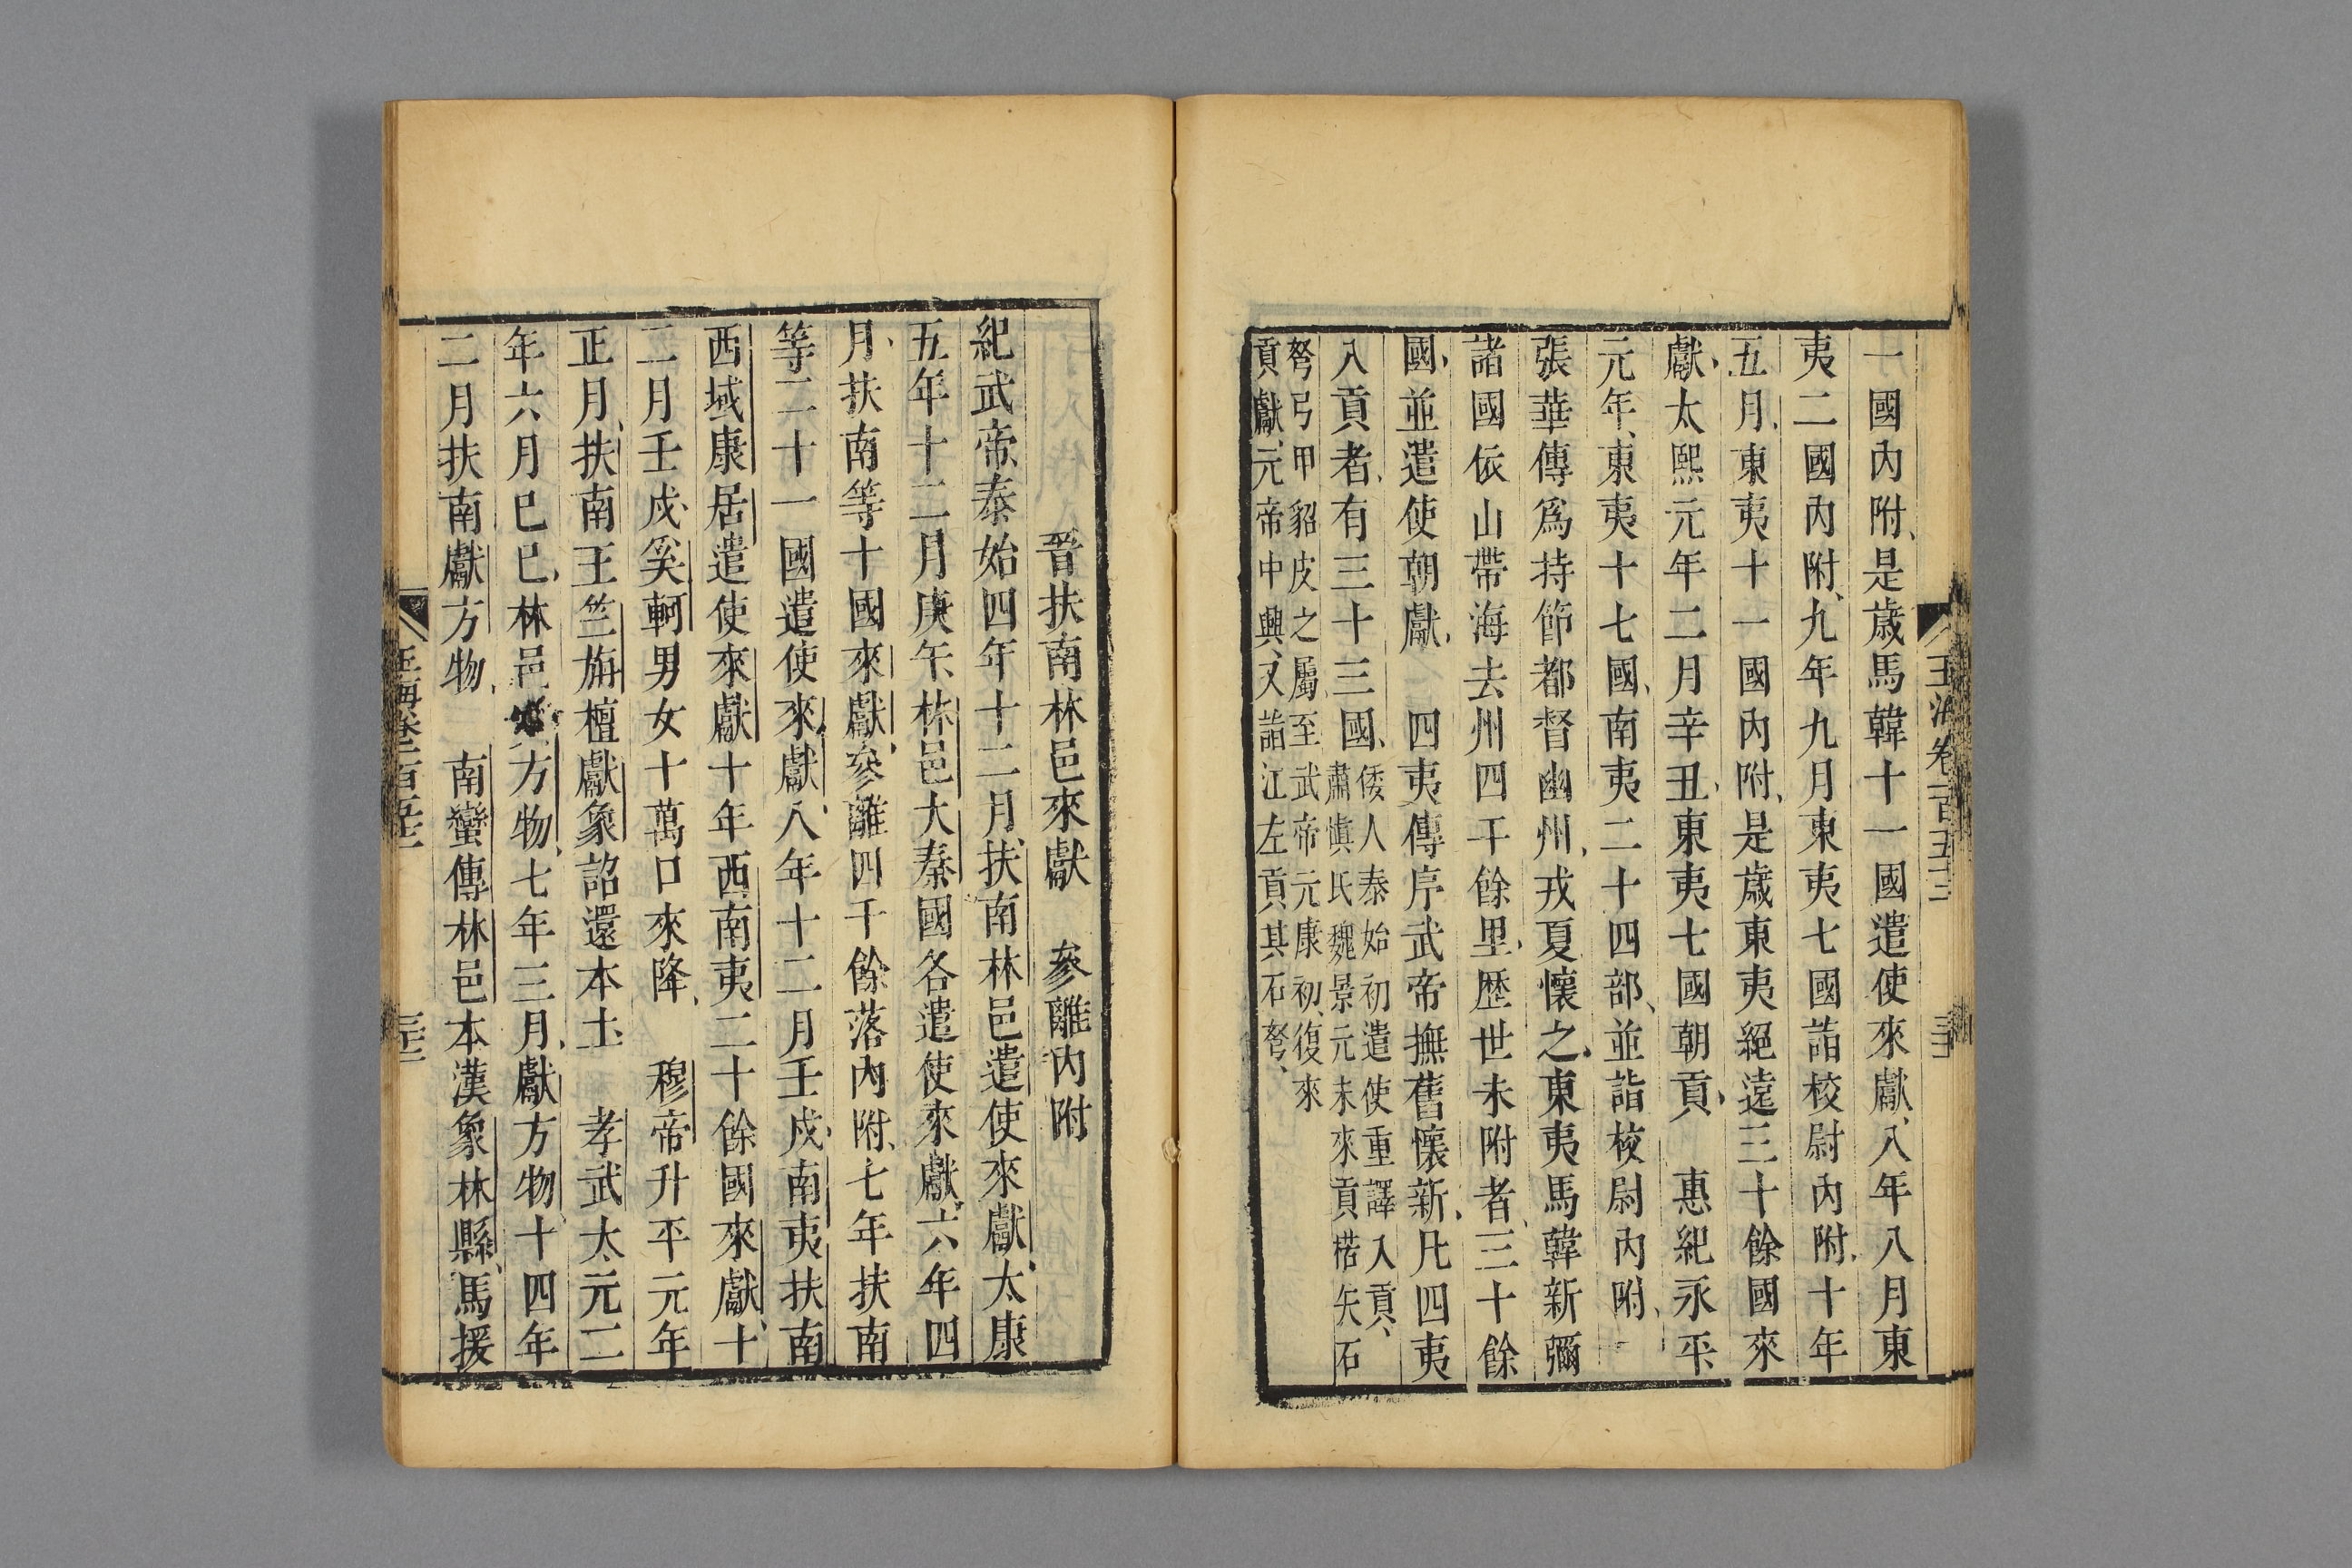 玉海卷一百五十二
一國內附是歲馬韓十一國遣使來獻八年八月東
夷二國內附九年九月東夷七國詣校尉內附十年
五月東夷十一國內附是歲東夷絕遠三十餘國來
獻太熙元年二月辛丑東夷七國朝貢　惠紀永平
元年東夷十七國南夷二十四部並詣校尉內附
張華傳爲持節都督幽州戎夏懷之東夷馬韓新彌
諸國依山帶海去州四千餘里歷世未附者三十餘
國並遣使朝獻　四夷傳序武帝撫舊懷新凡四夷
入貢者有三十三國倭人泰始初遣使重譯入貢
肅愼氏魏景元末來貢楛矢石
弩弓甲貂皮之屬至武帝元康初復來
貢獻元帝中興又詣江左貢其石弩
晉扶南林邑來獻　參離內附
紀武帝泰始四年十二月扶南林邑遣使來獻太康
五年十二月庚午林邑大秦國各遣使來獻六年四
月扶南等十國來獻參離四千餘落內附七年扶南
等二十一國遣使來獻八年十二月壬戌南夷扶南
西域康居遣使來獻十年西南夷二十餘國來獻十
二月壬戌奚軻男女十萬口來降　穆帝升平元年
正月扶南王竺旃檀獻象詔還本土　孝武太元二
年六月巳巳林邑方物七年三月獻方物十四年
二月扶南獻方物　南蠻傳林邑本漢象林縣馬援
玉海卷一百五十二